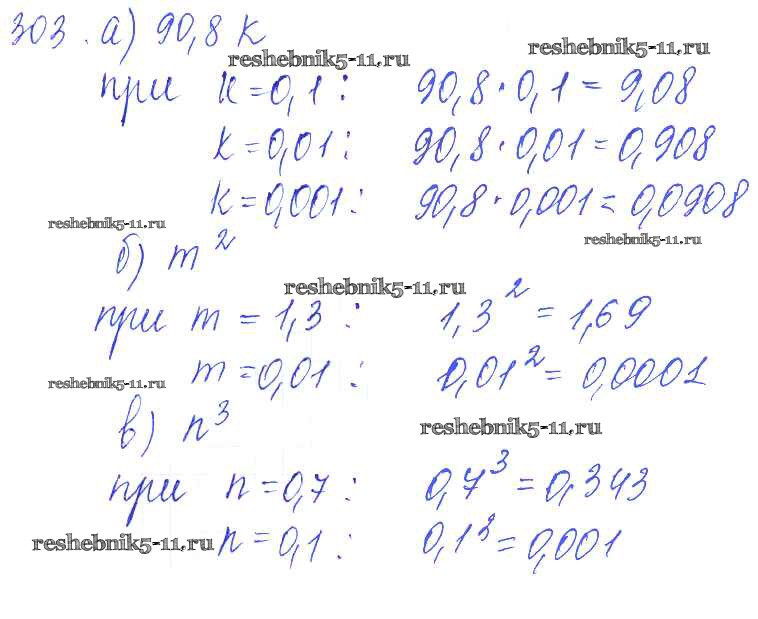 303. а) 90,8 k
reshebnik5-11.ru reshebnik5-11.ru
при k = 0,1 : 90,8 · 0,1 = 9,08
k = 0,01 : 90,8 · 0,01 = 0,908
k = 0,001 : 90,8 · 0,001 = 0,0908
reshebnik5-11.ru reshebnik5-11.ru
б) m²
reshebnik5-11.ru
при m = 1,3 : 1,3² = 1,69
m = 0,01 : 0,01² = 0,0001
reshebnik5-11.ru
в) n³
reshebnik5-11.ru
при n = 0,7 : 0,7³ = 0,343
reshebnik5-11.ru n = 0,1 : 0,1³ = 0,001